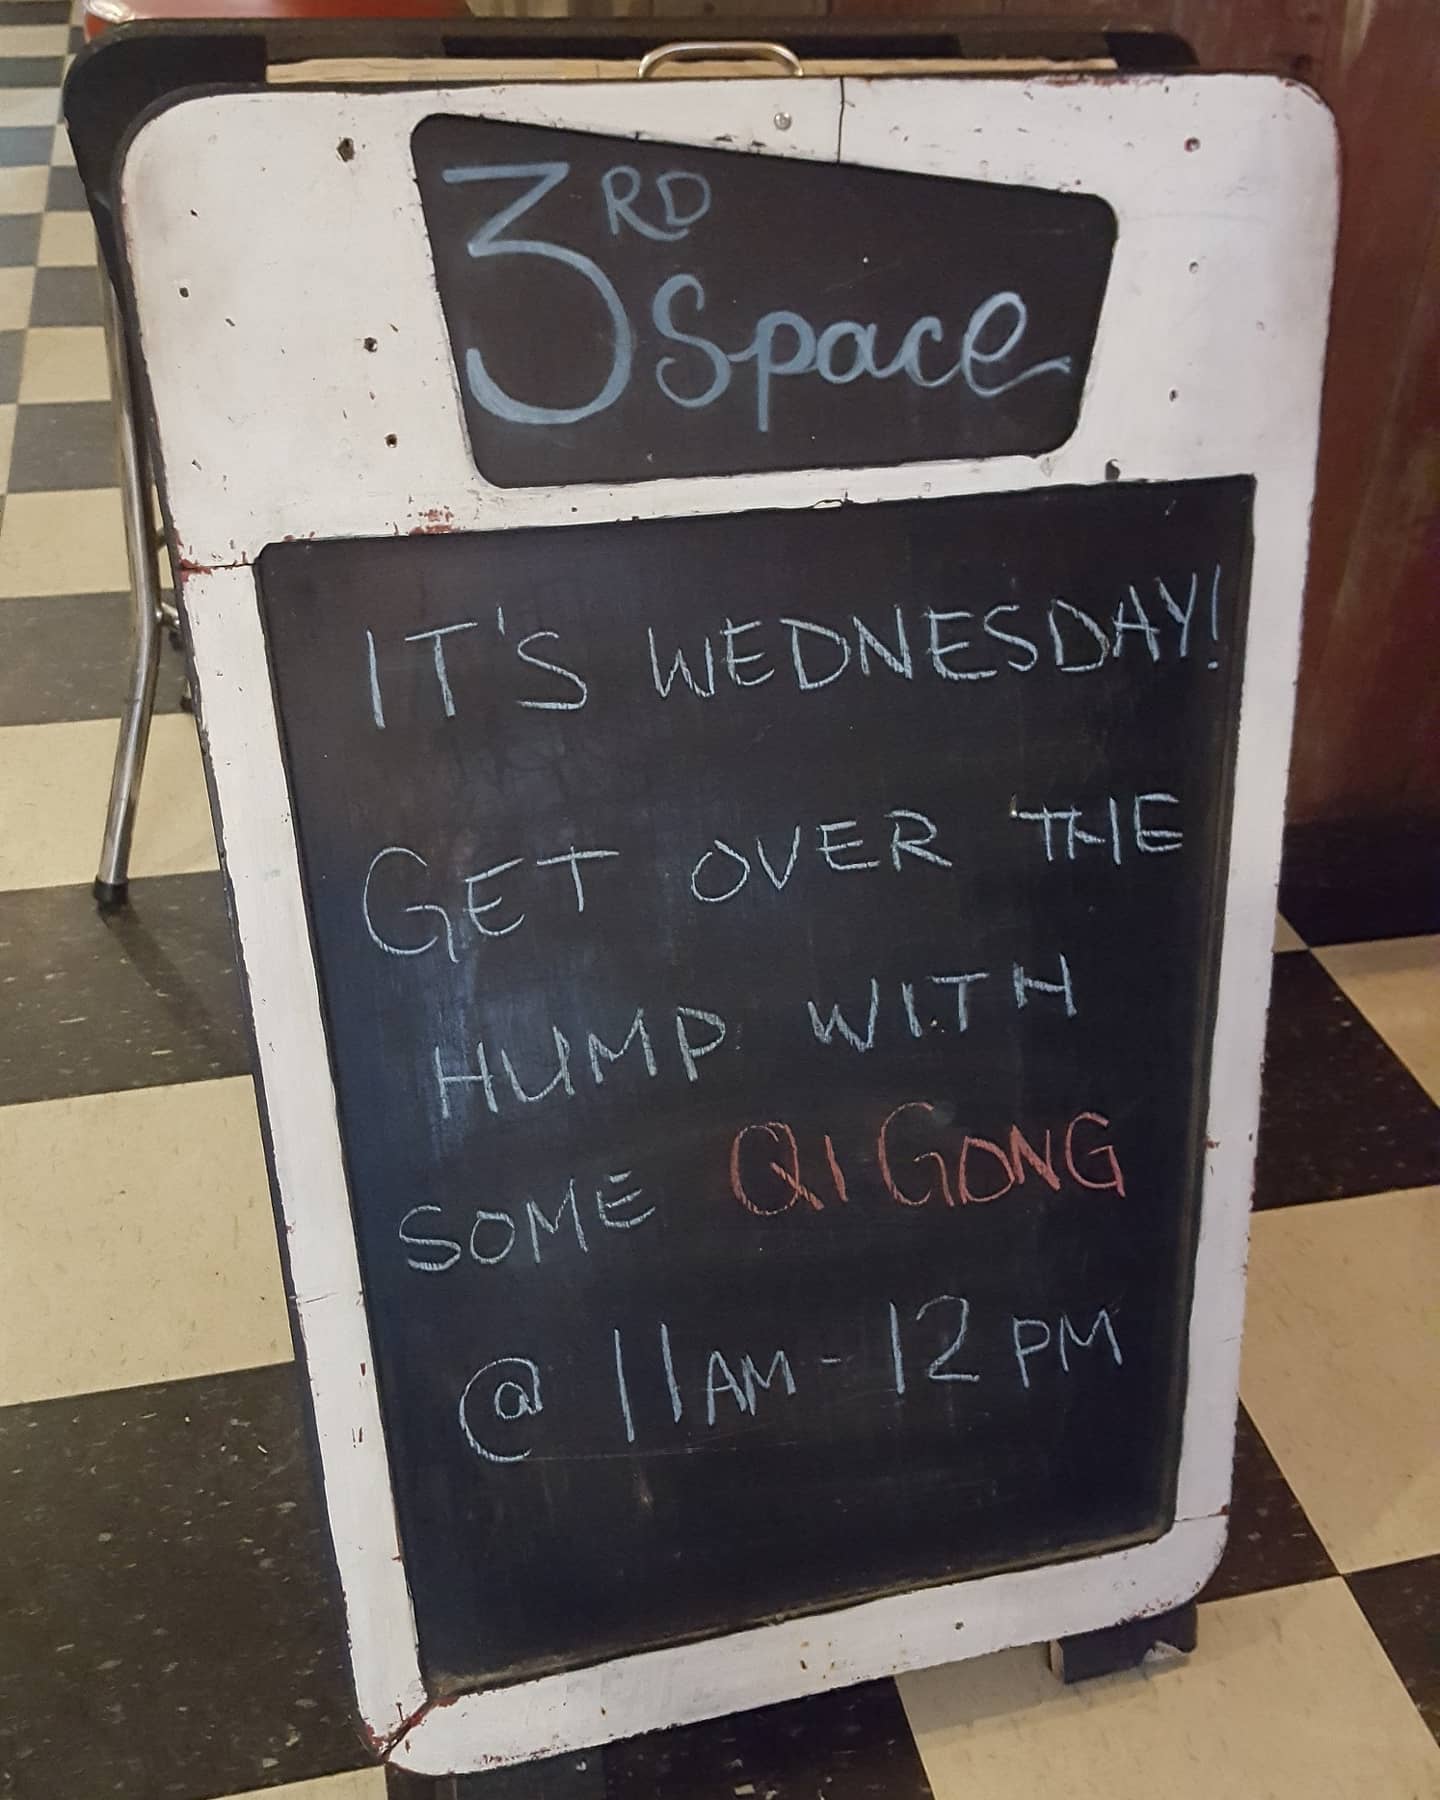 3RD
Space
IT'S WEDNESDAY!
GET OVER THE
HUMP WITH
SOME QI GONG
@ 11AM - 12PM